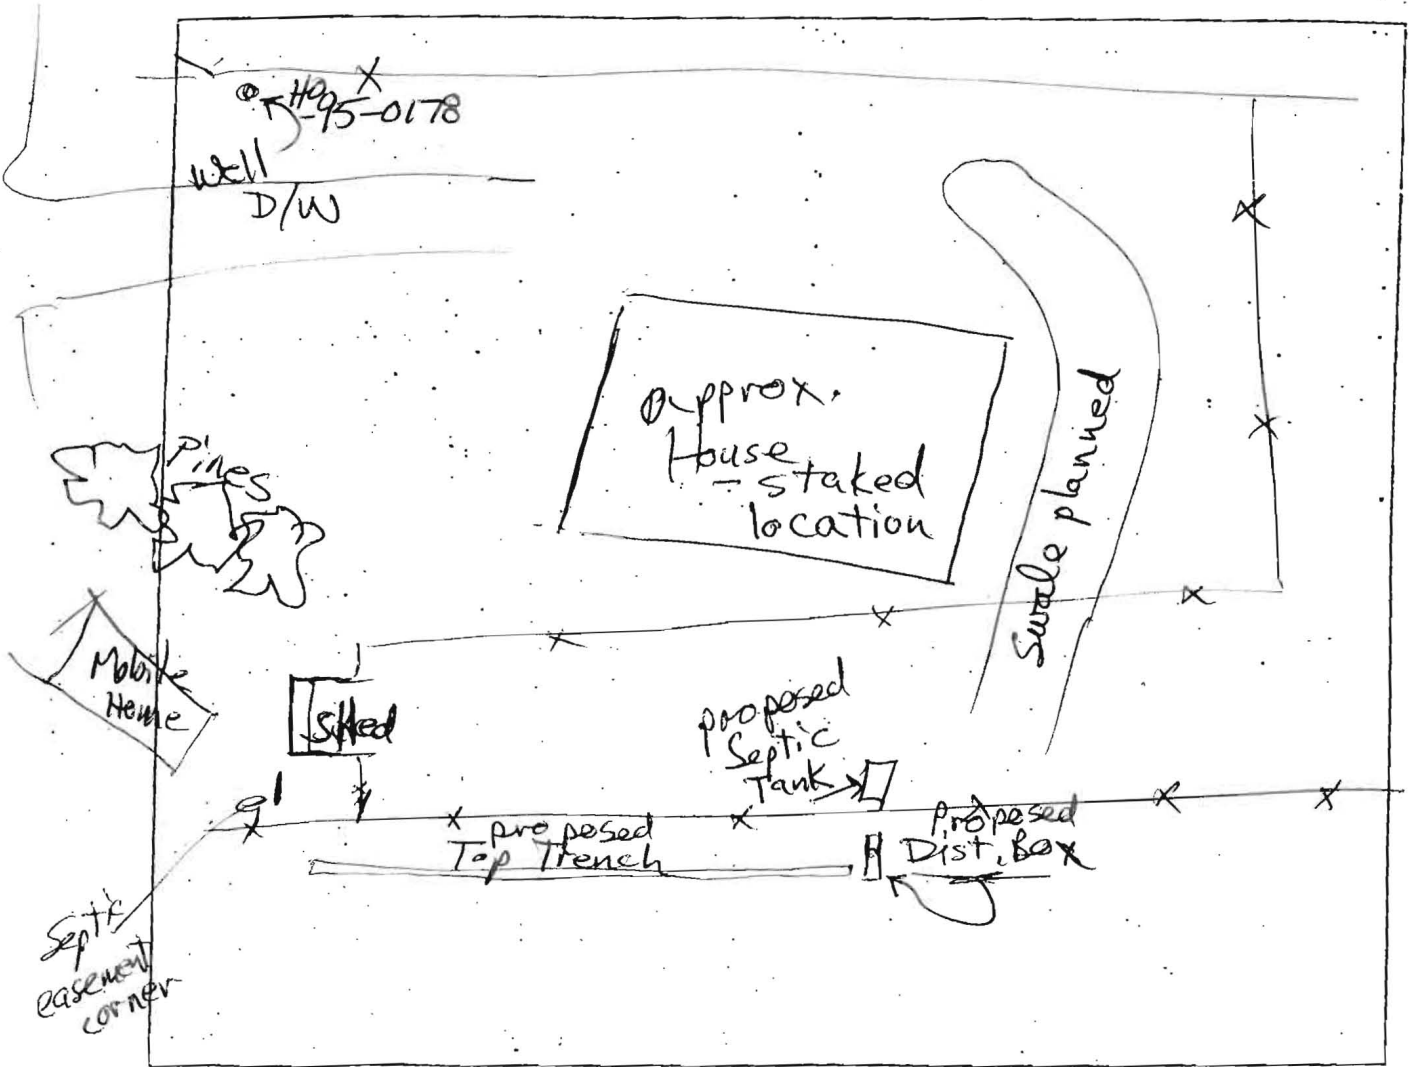 HO
-95-0178
Well
D/W
approx.
House
- staked
location
Swale planned
Pines
Mobile
Home
SHed
proposed
Septic
Tank
proposed
Top Trench
Proposed
Dist. Box
Septic
easement
corner